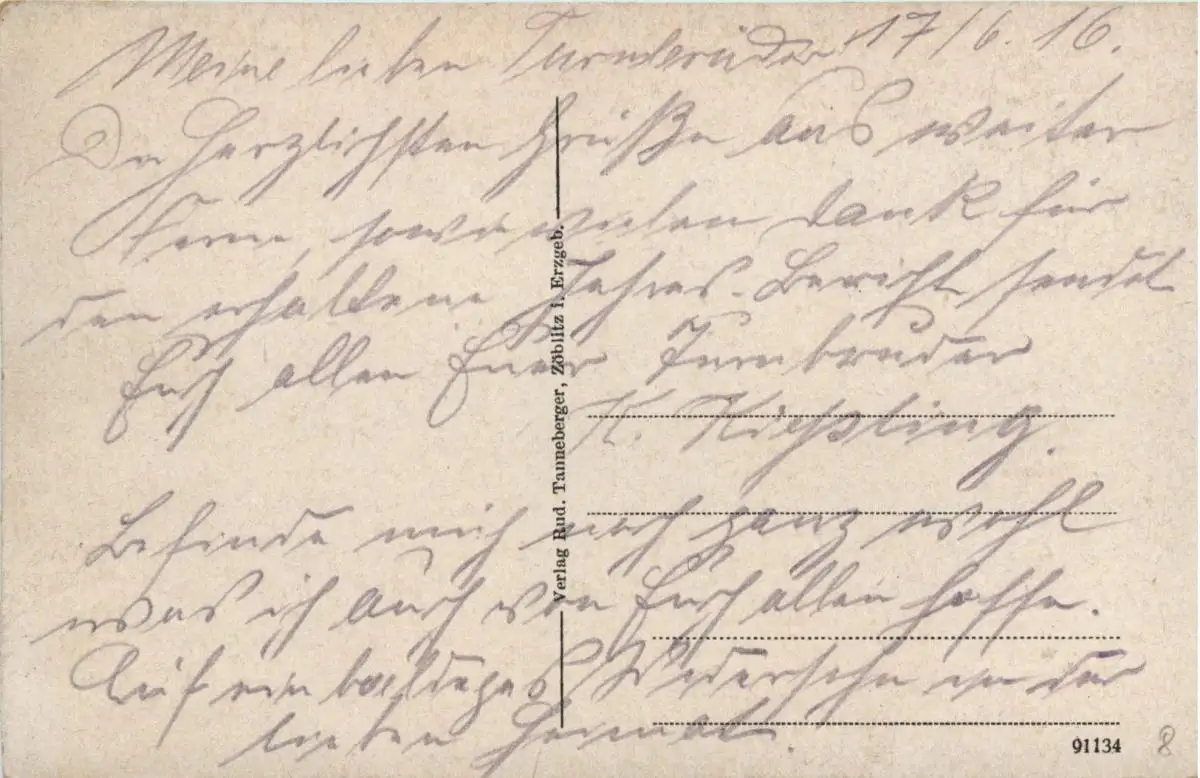 Meine lieben Turnbrüder 17/6. 16.
Die herzlichsten Grüße aus weiter
Ferne, sowie vielen Dank für
den erhaltene Jahres-Bericht sendet
Euch allen Euer Turnbruder
K. Kießling.
Befinde mich noch ganz wohl
was ich auch von Euch allen hoffe.
Auf ein baldeges Wiedersehn in der
lieben Heimat.
Verlag Rud. Tanneberger, Zöblitz i. Erzgeb.
91134
8